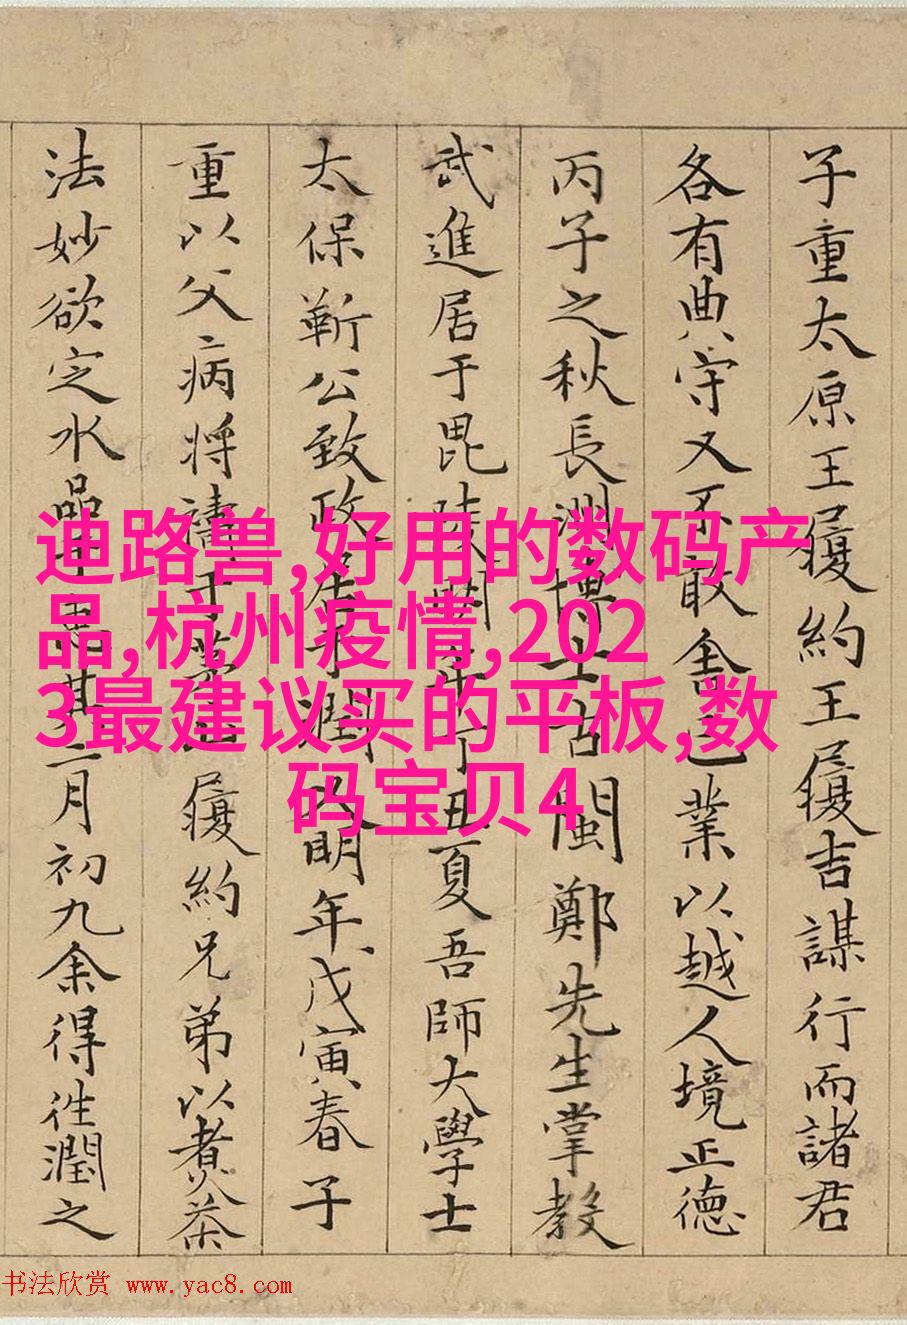 子重太原王履約王履吉謀行而諸君
各有典守又不敢舍己業以越人境正德
丙子之秋長洲博士古閩鄭先生掌教
武進居于毘陵明年丁丑夏吾師大學士
太保靳公致政居于潤又明年戊寅春子
重以父病將禱于履約兄弟以煮茶
法妙欲定水品于惠其二月初九余得往潤之
迪路兽,好用的数码产
品,杭州疫情,202
3最建议买的平板,数
码宝贝4
书法欣赏 www.yac8.com